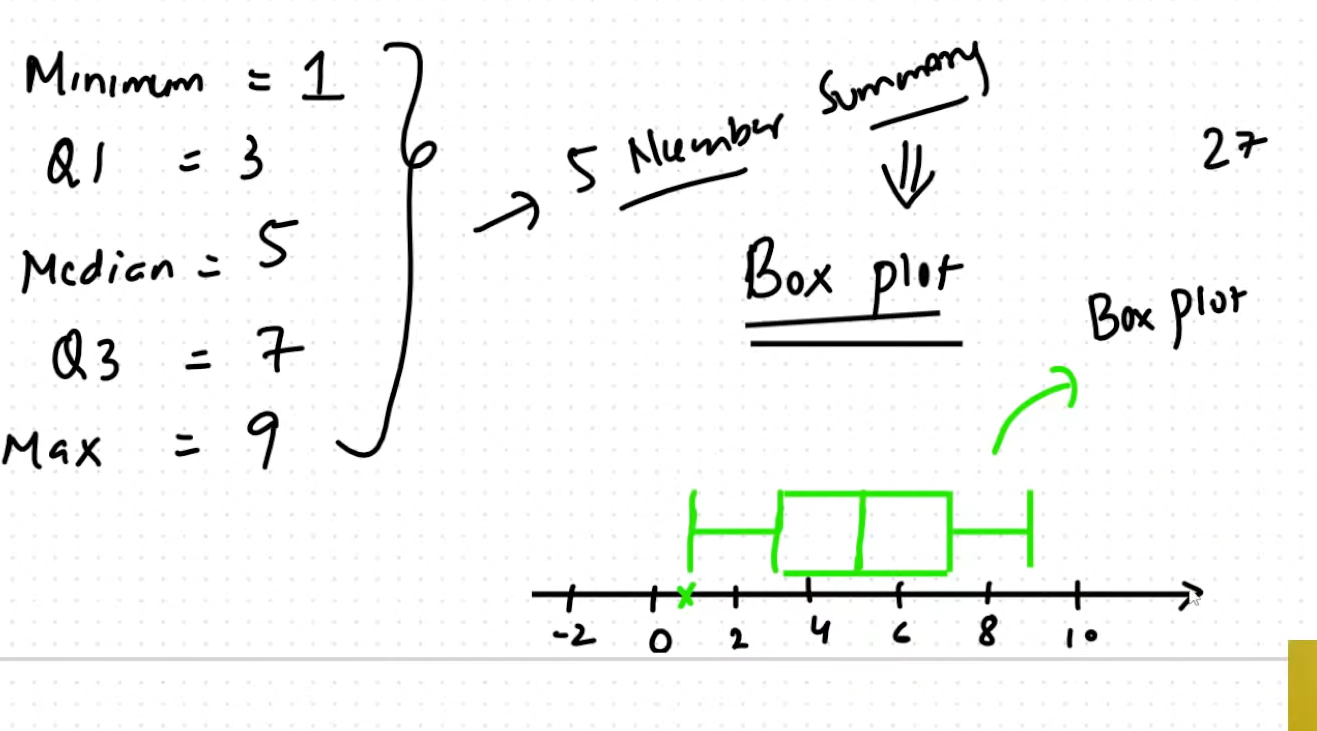 Minimum = 1
Q1 = 3
Median = 5
Q3 = 7
Max = 9
→ 5 Number Summary
⇓
Box plot
27
Box plot
-2 0 2 4 6 8 10